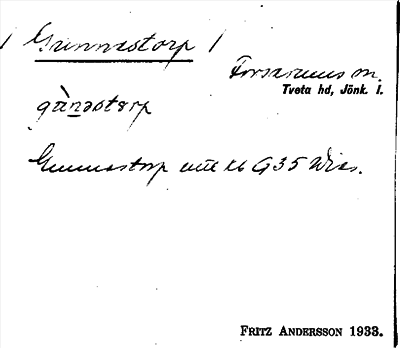 Gunnastorp
Forserums sn.
Tveta hd, Jönk. l.
gànastɐrp
Gunnastorp enl. kb G35 Wies.
FRITZ ANDERSSON 1933.